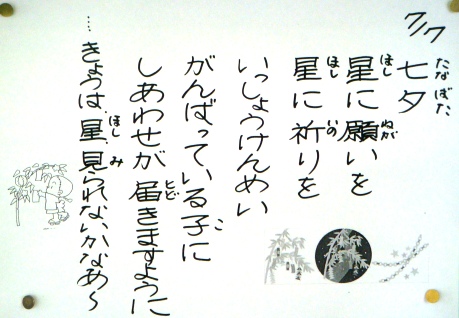 7/7
七夕
たなばた
星に願いを
ほし ねが
星に祈りを
ほし いの
いっしょうけんめい
がんばっている子に
こ
しあわせが届きますように
とど
…きょうは、星、見られないかなあ〜
ほし み